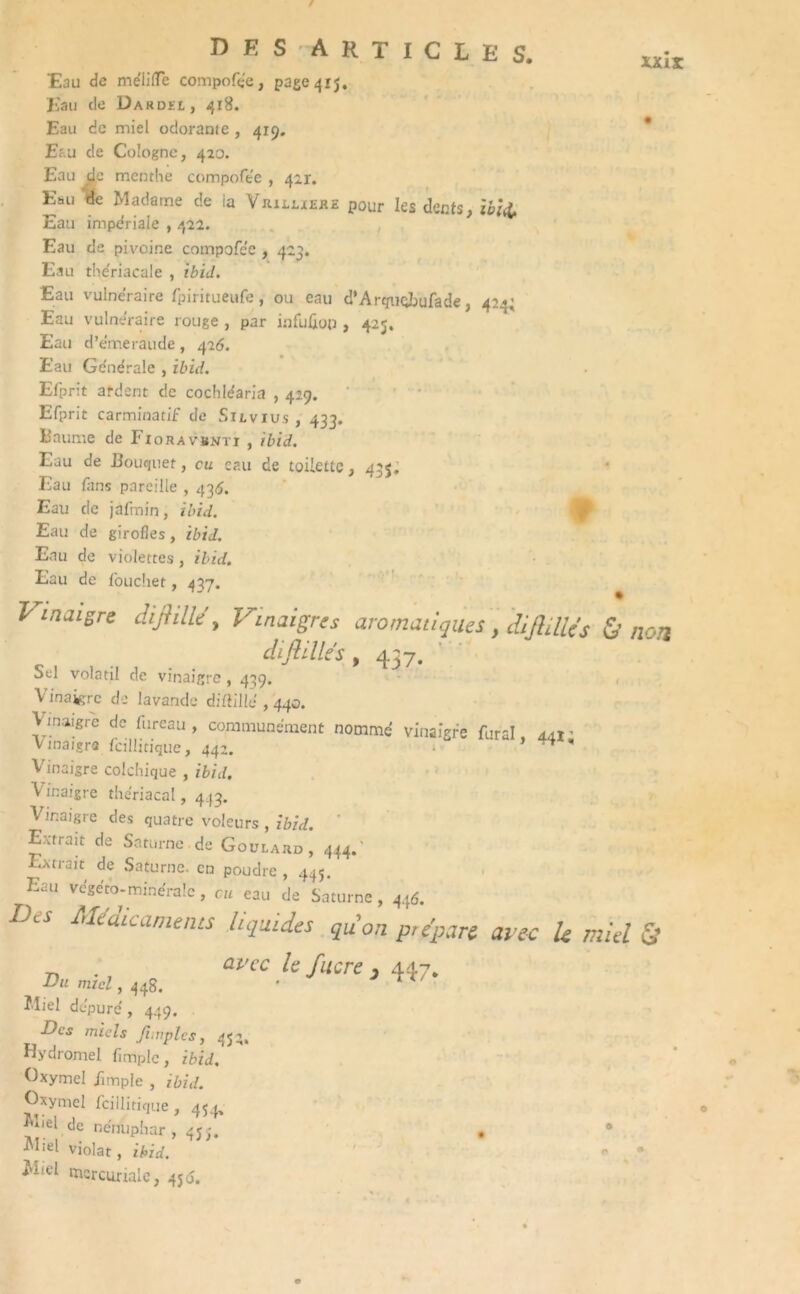 DES ARTICLES. xxix
Eau de méliſſe compoſée, page 415.
Eau de DARDEL, 418.
Eau de miel odorante, 419.
Eau de Cologne, 420.
Eau de menthe compoſée, 421.
Eau de Madame de la VRILLIERE pour les dents, ibid.
Eau impériale, 422.
Eau de pivoine compoſée, 423.
Eau thériacale, ibid.
Eau vulnéraire ſpiritueuſe, ou eau d'Arquebuſade, 424.
Eau vulnéraire rouge, par infuſion, 425.
Eau d'émeraude, 426.
Eau Générale, ibid.
Eſprit ardent de cochléaria, 429.
Eſprit carminatif de SILVIUS, 433.
Baume de FIORAVENTI, ibid.
Eau de Bouquet, ou eau de toilette, 435.
Eau ſans pareille, 436.
Eau de jaſmin, ibid.
Eau de girofles, ibid.
Eau de violettes, ibid.
Eau de ſouchet, 437.
Vinaigre diſtillé, Vinaigres aromatiques, diſtillés & non
diſtillés, 437.
Sel volatil de vinaigre, 439.
Vinaigre de lavande diſtillé, 440.
Vinaigre de ſureau, communément nommé vinaigre ſural, 441.
Vinaigre ſcillitique, 442.
Vinaigre colchique, ibid.
Vinaigre thériacal, 443.
Vinaigre des quatre voleurs, ibid.
Extrait de Saturne de GOULARD, 444.
Extrait de Saturne en poudre, 445.
Eau végéto-minérale, ou eau de Saturne, 446.
Des Médicaments liquides qu'on prépare avec le miel &
avec le ſucre, 447.
Du miel, 448.
Miel dépuré, 449.
Des miels ſimples, 453.
Hydromel ſimple, ibid.
Oxymel ſimple, ibid.
Oxymel ſcillitique, 454.
Miel de nénuphar, 455.
Miel violat, ibid.
Miel mercuriale, 456.